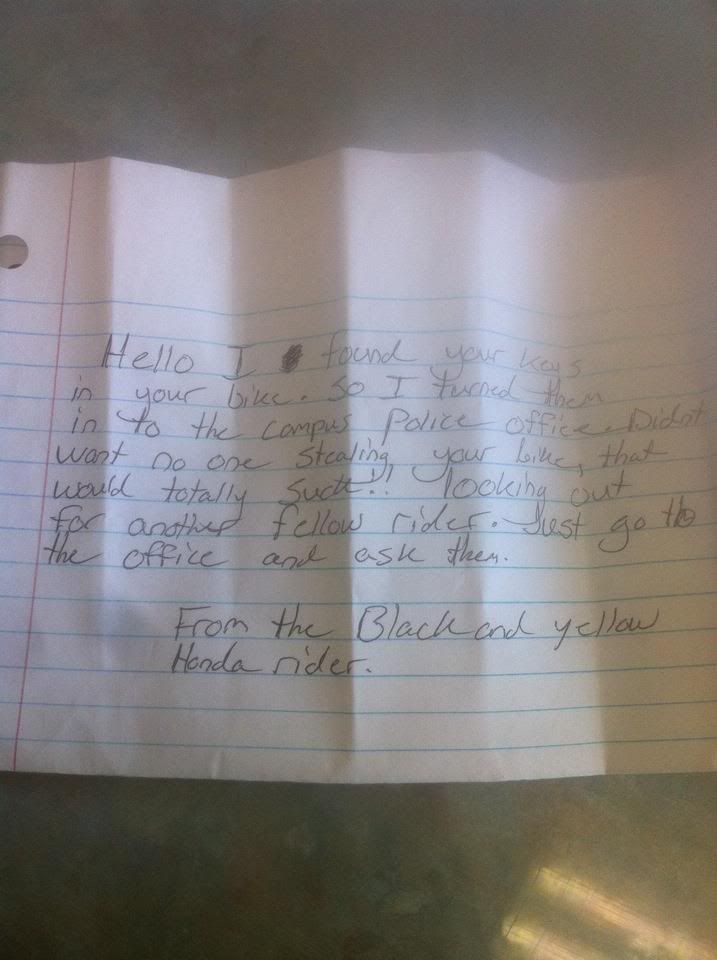 Hello I found your keys
in your bike. So I turned them
in to the campus Police office. Didnt
want no one stealing your bike, that
would totally suck!! looking out
for another fellow rider. Just go to
the office and ask them.
From the Black and yellow
Honda rider.